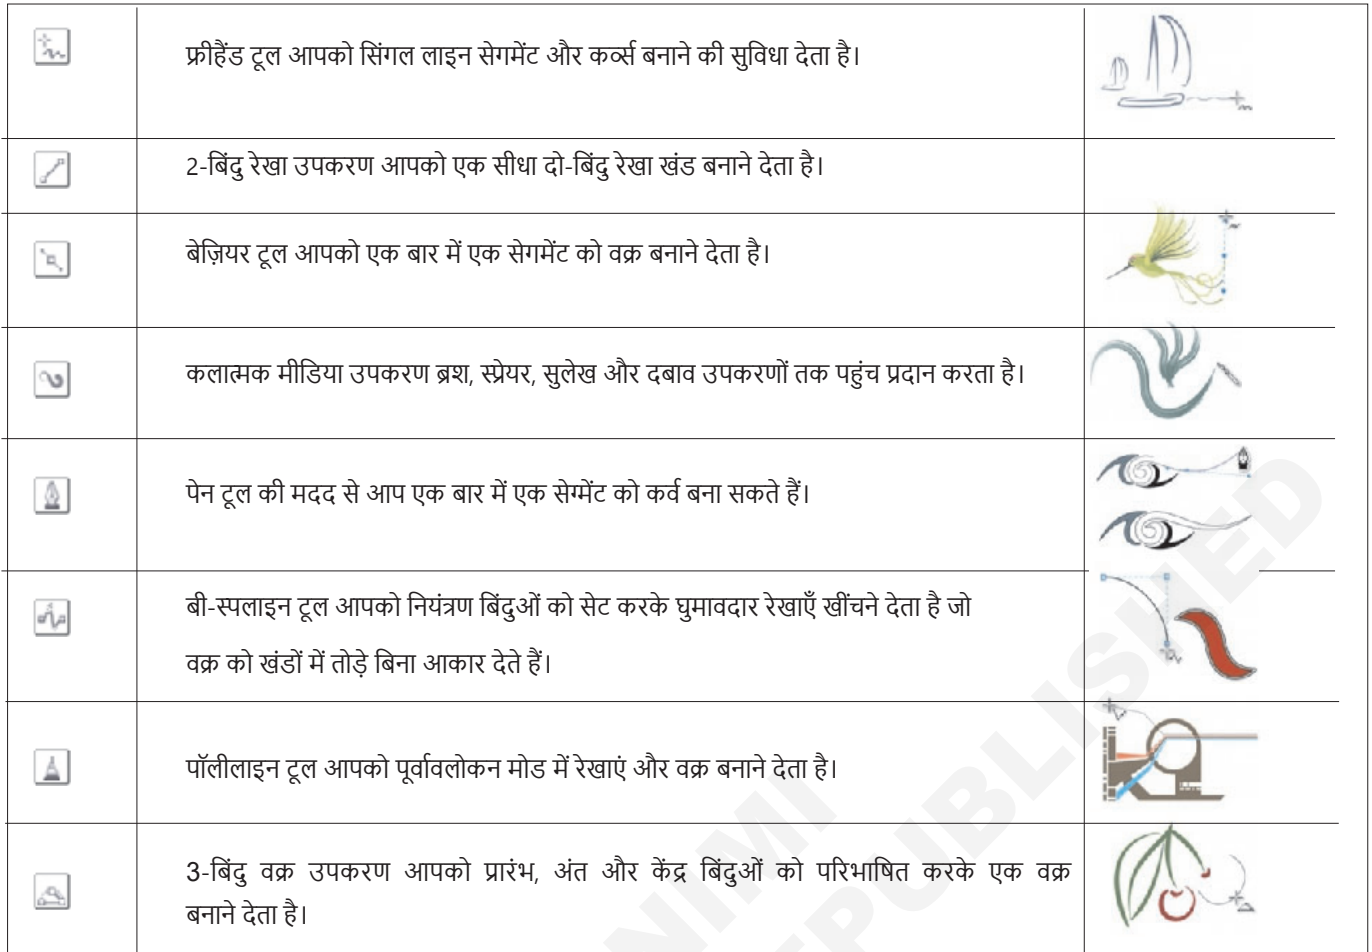 फ्रीहैंड टूल आपको सिंगल लाइन सेगमेंट और कर्व्स बनाने की सुविधा देता है।
2-बिंदु रेखा उपकरण आपको एक सीधा दो-बिंदु रेखा खंड बनाने देता है।
बेज़ियर टूल आपको एक बार में एक सेगमेंट को वक्र बनाने देता है।
कलात्मक मीडिया उपकरण ब्रश, स्प्रेयर, सुलेख और दबाव उपकरणों तक पहुंच प्रदान करता है।
पेन टूल की मदद से आप एक बार में एक सेग्मेंट को कर्व बना सकते हैं।
बी-स्पलाइन टूल आपको नियंत्रण बिंदुओं को सेट करके घुमावदार रेखाएँ खींचने देता है जो
वक्र को खंडों में तोड़े बिना आकार देते हैं।
पॉलीलाइन टूल आपको पूर्वावलोकन मोड में रेखाएं और वक्र बनाने देता है।
3-बिंदु वक्र उपकरण आपको प्रारंभ, अंत और केंद्र बिंदुओं को परिभाषित करके एक वक्र
बनाने देता है।
NIMI
EPUBLISHED